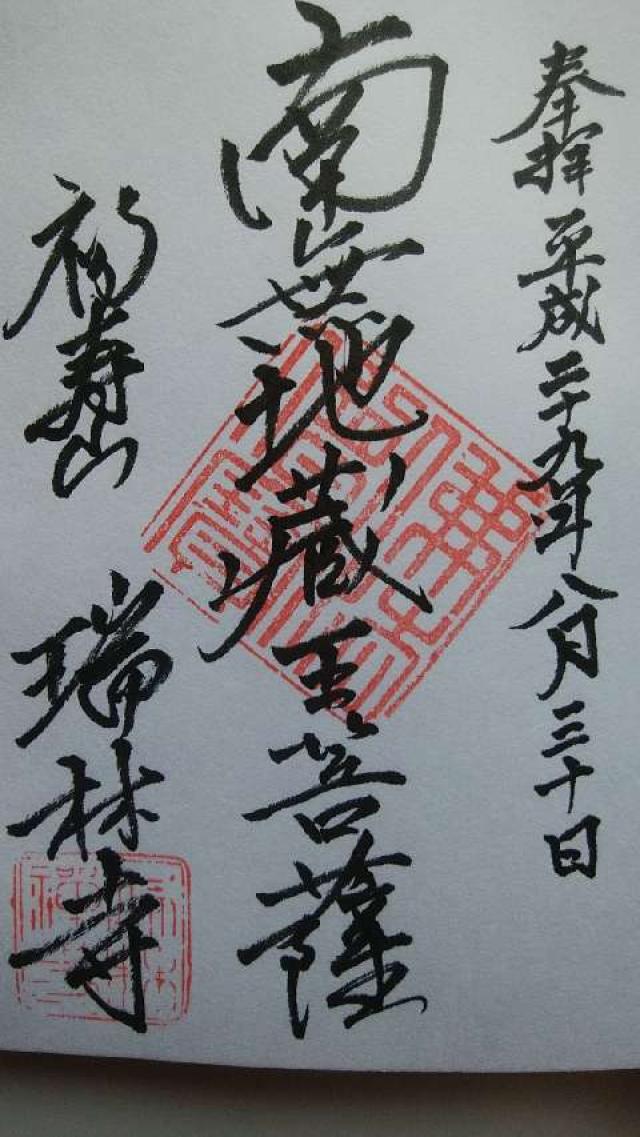 奉拝 平成二十九年八月三十日
南無地蔵王菩薩
福寿山 瑞林寺